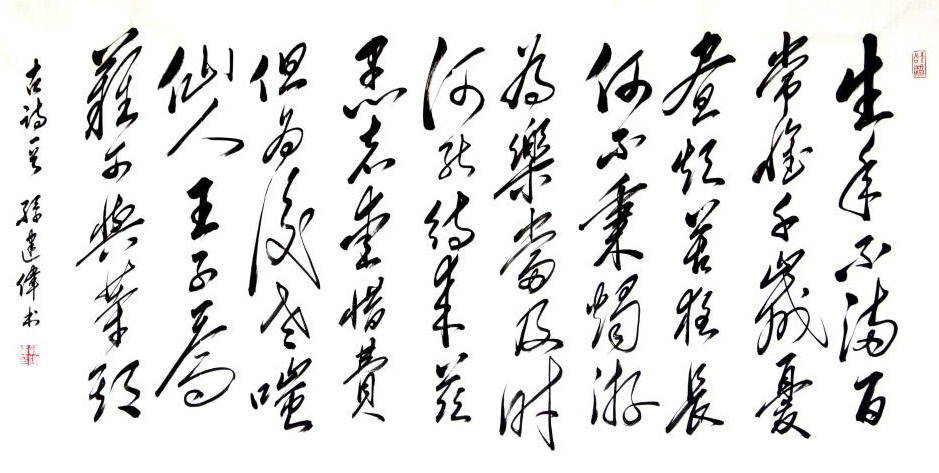 生年不滿百
常懷千歲憂
晝短苦夜長
何不秉燭游
為樂當及時
何能待來茲
愚者愛惜費
但為後世嗤
仙人王子喬
難可與等期
古詩一首 孫建偉书